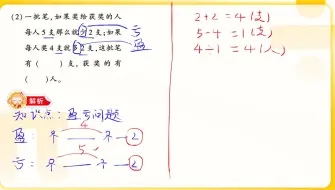 (2)一批笔,如果奖给获奖的人
每人5支那么就少2支;如果
每人奖4支就多2支,这批笔
有(　　)支,获奖的有
(　　)人。
亏
盈
解析
知识点:盈亏问题
盈: 个 4 个 → 2
亏: 个 5 个 → 2
2+2=4(支)
5-4=1(支)
4÷1=4(人)